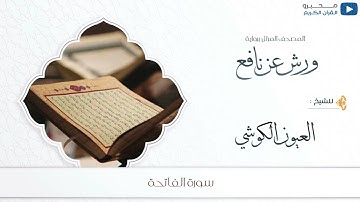 محبرو
القرآن الكريم
المصحف المرتل برواية
ورش عن نافع
للشيخ :
العيون الكوشي
سورة الفاتحة